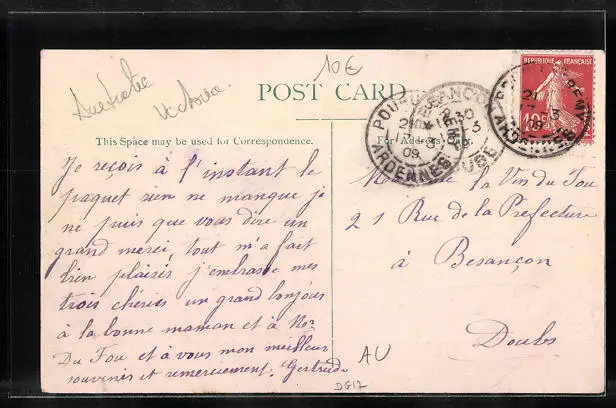 Australie
Victoria
10€
POST CARD
This Space may be used for Correspondence.
For Address
REPUBLIQUE FRANÇAISE
10c
ARDENNES
ARDENNES
Je reçois à l'instant le
paquet rien ne manque je
ne puis que vous dire un
grand merci tout m'a fait
bien plaisir j'embrasse mes
trois chéries un grand bonjour
à la bonne maman et à Mr
Du Fou et à vous mon meilleur
souvenir et remerciement. Gertrude
la Vve du Fou
21 Rue de la Prefecture
à Besançon
Doubs
AU
DG17